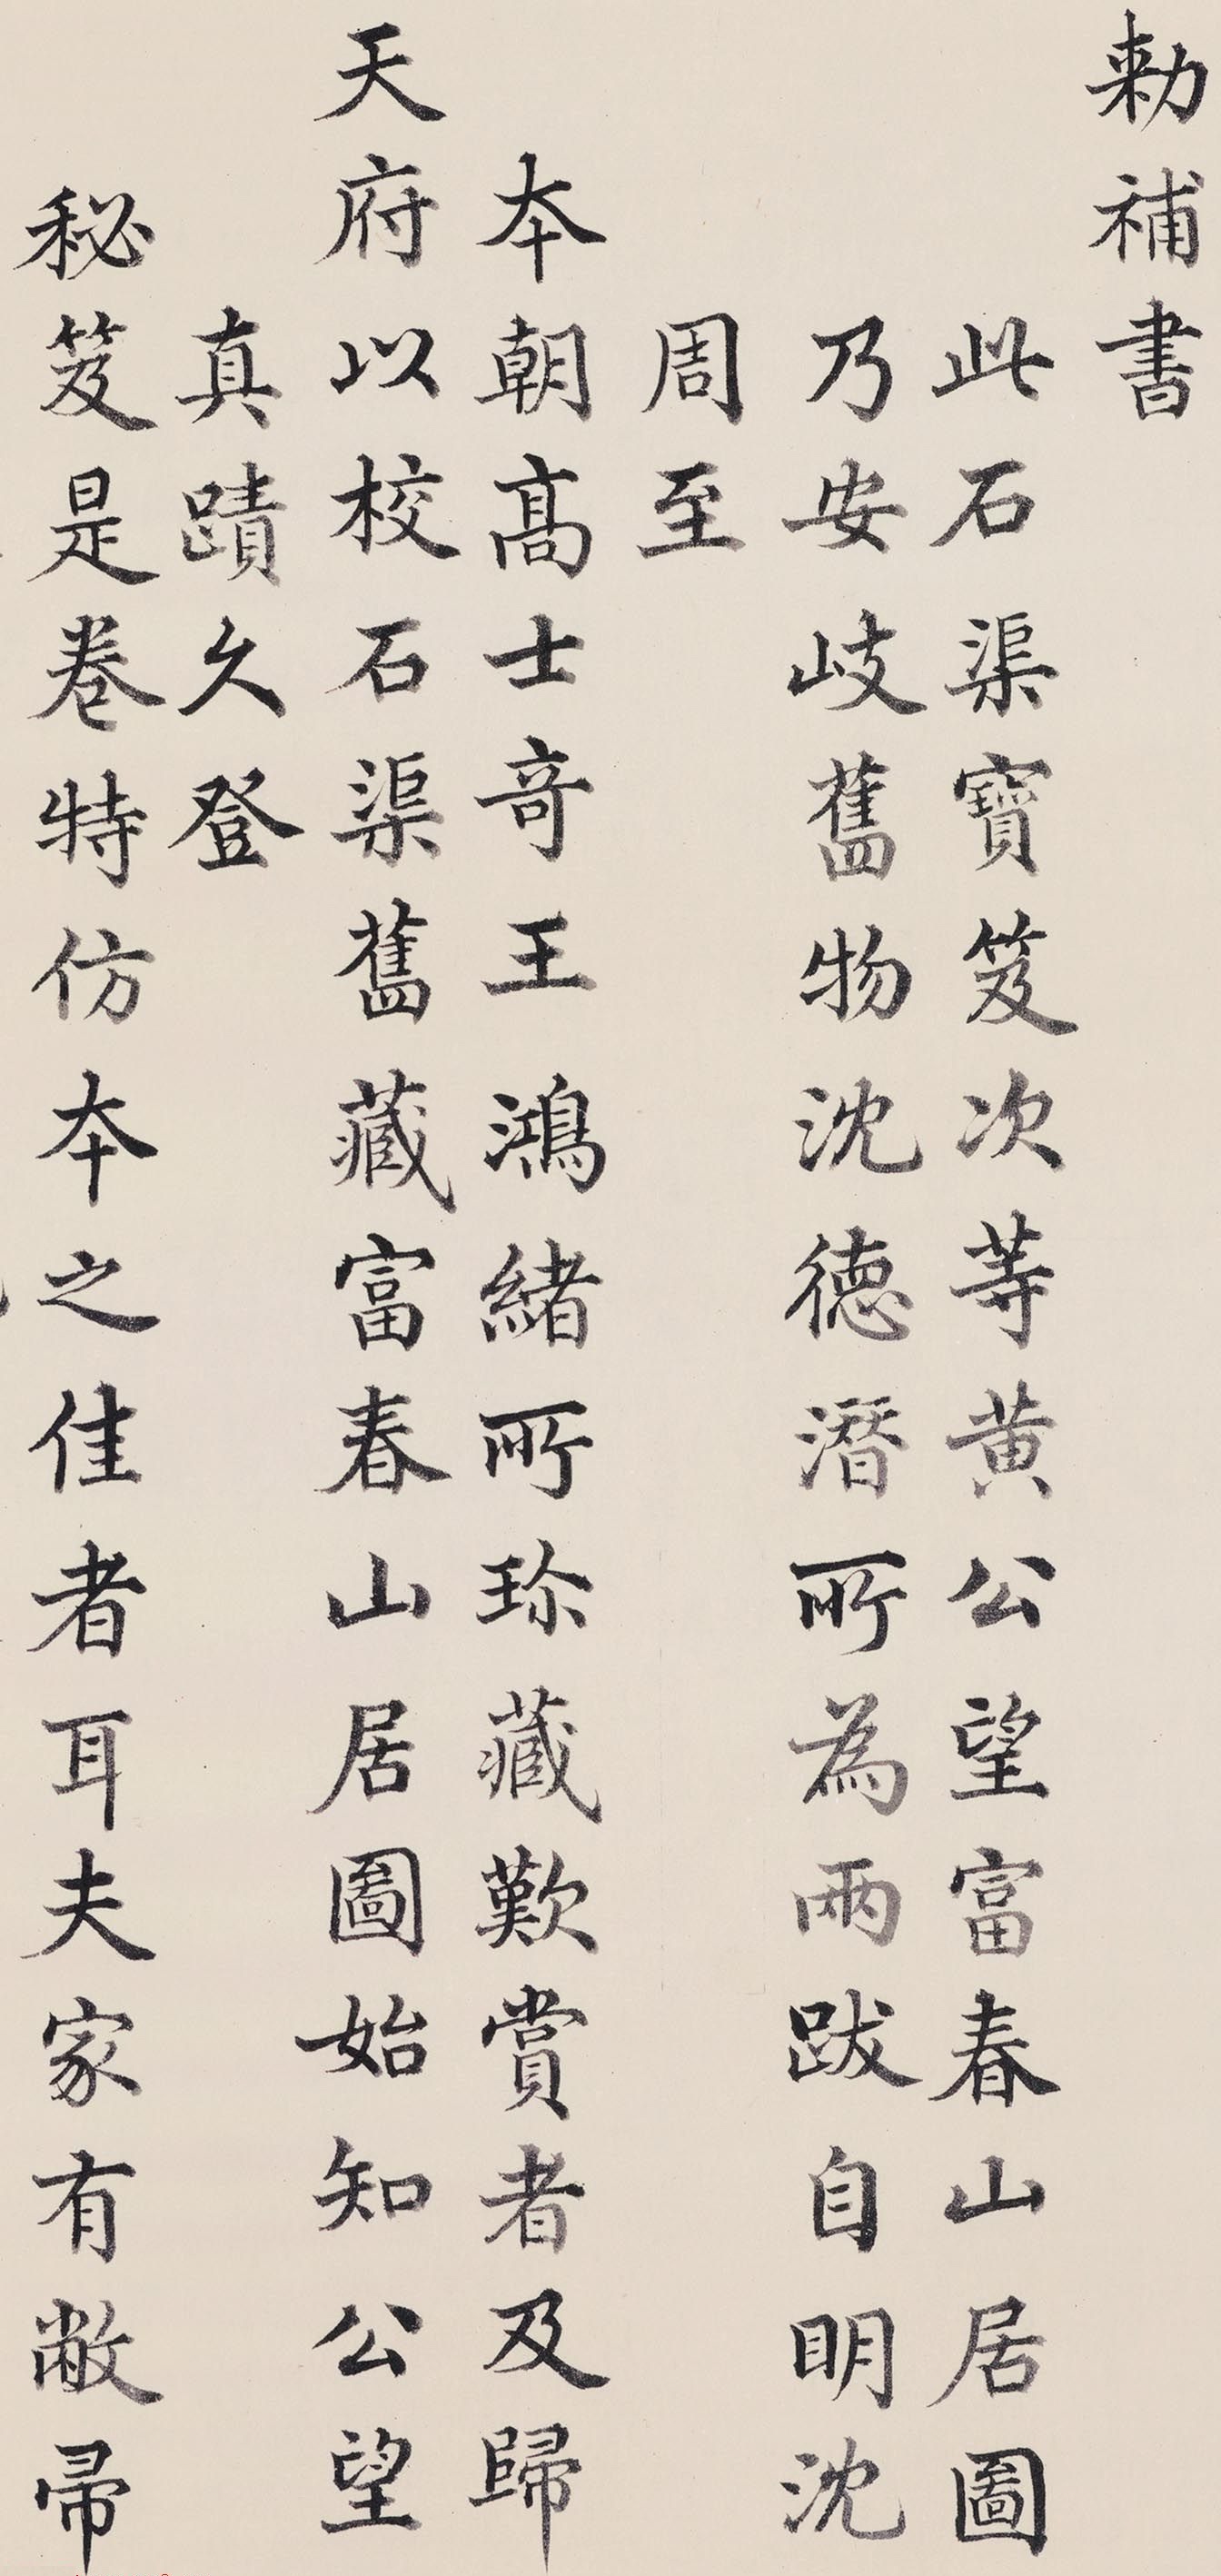 勅補書
此石渠寶笈次等黄公望富春山居圖
乃安岐舊物沈德潛所為兩跋自明沈
周至
本朝高士奇王鴻緒所珎藏歎賞者及歸
天府以校石渠舊藏富春山居圖始知公望
真蹟久登
秘笈是卷特仿本之佳者耳夫家有敝帚